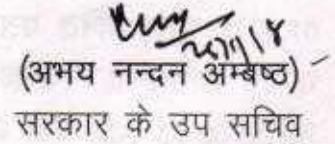 (अभय नन्दन अम्बष्ठ)
सरकार के उप सचिव